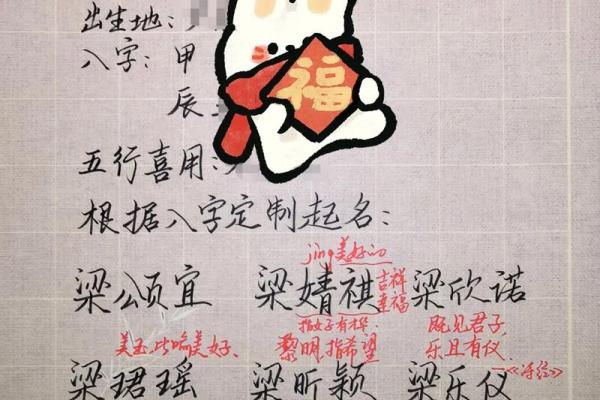 出生地：
八字：甲
辰
福
五行喜用：
根据八字定制起名：
jing美好的
梁颂宜 梁婧祺 梁欣诺
吉祥
幸福
指女子有才华.
美玉比喻美好、 黎明,指希望
既见君子,
乐且有仪.
—《诗经》
梁珺瑶 梁昕颖 梁乐仪